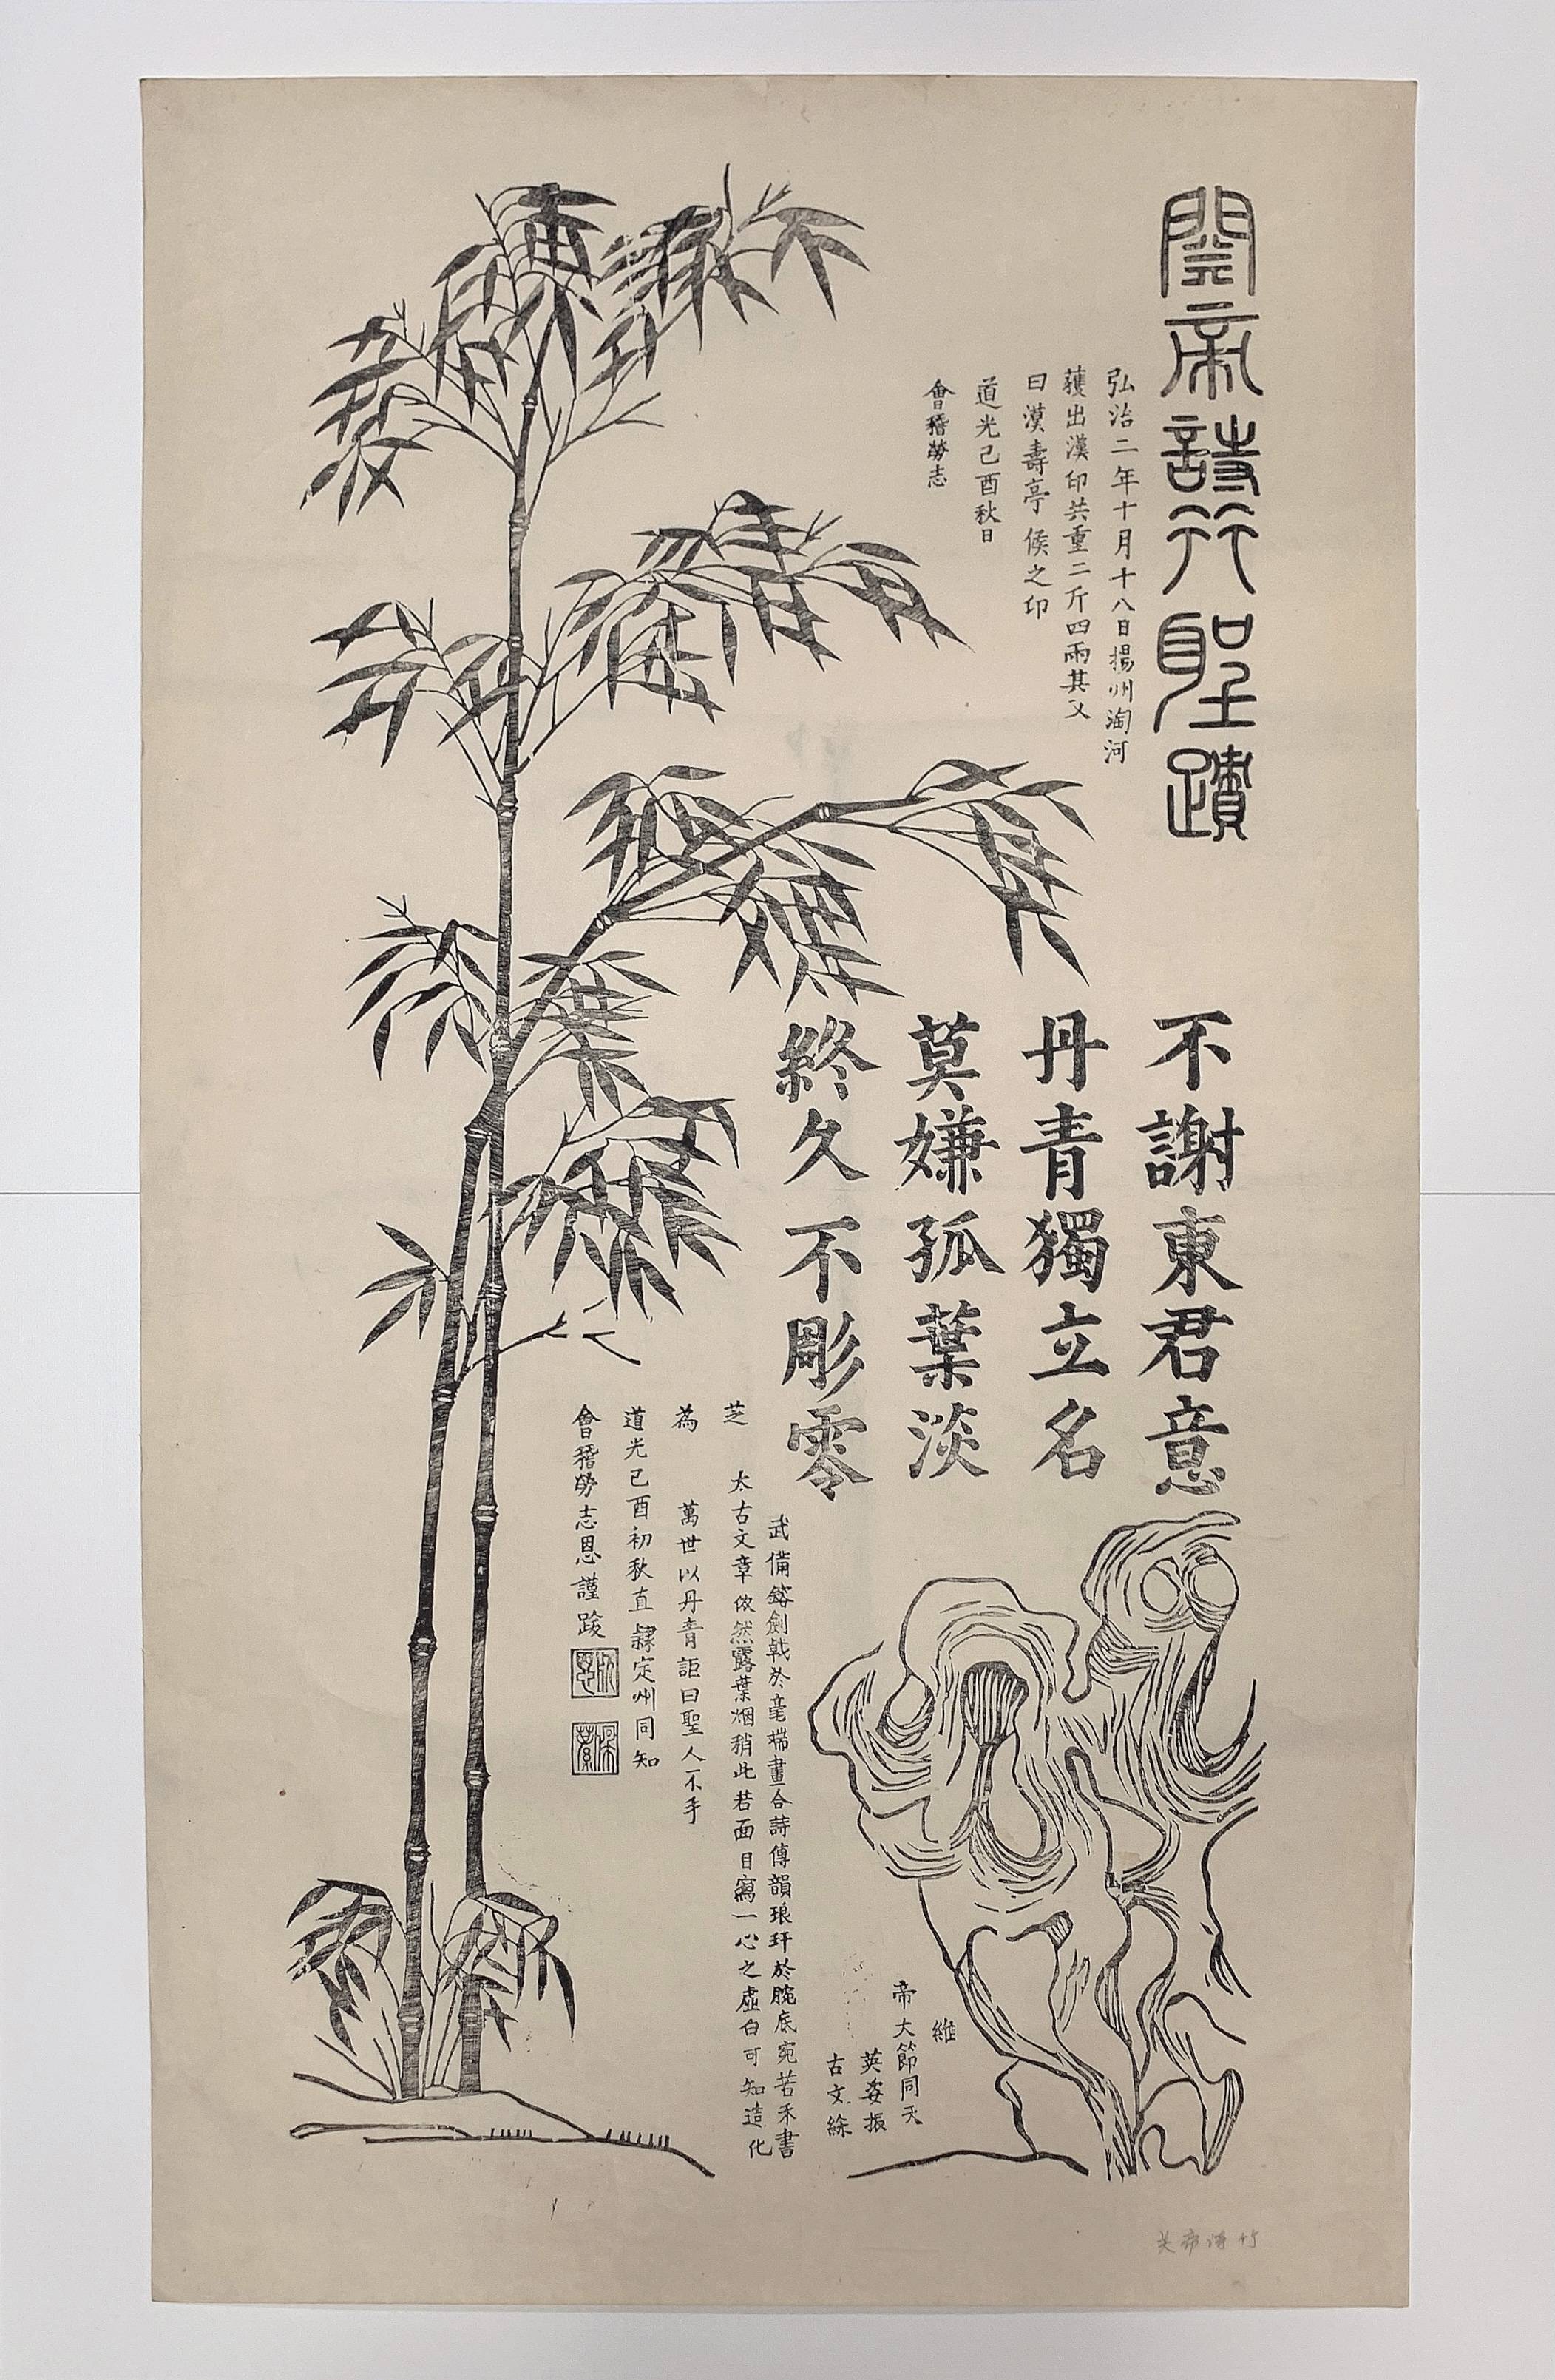 關帝詩竹聖蹟
弘治二年十月十八日揚州淘河
獲出漢印共重二斤四兩其文
曰漢壽亭侯之印
道光己酉秋日
會稽勞志
不謝東君意
丹青獨立名
莫嫌孤葉淡
終久不彫零
維
帝大節同天
英姿振
古文綜
武備鎔劍戟於毫端畫合詩傳韻琅玕於腕底宛若禾書
太古文章倣然露葉烟稍此若面目寫一心之虛白可知造化
芝
萬世以丹青詎曰聖人不手
為
道光己酉初秋直隸定州同知
會稽勞志恩謹跋
关帝诗竹